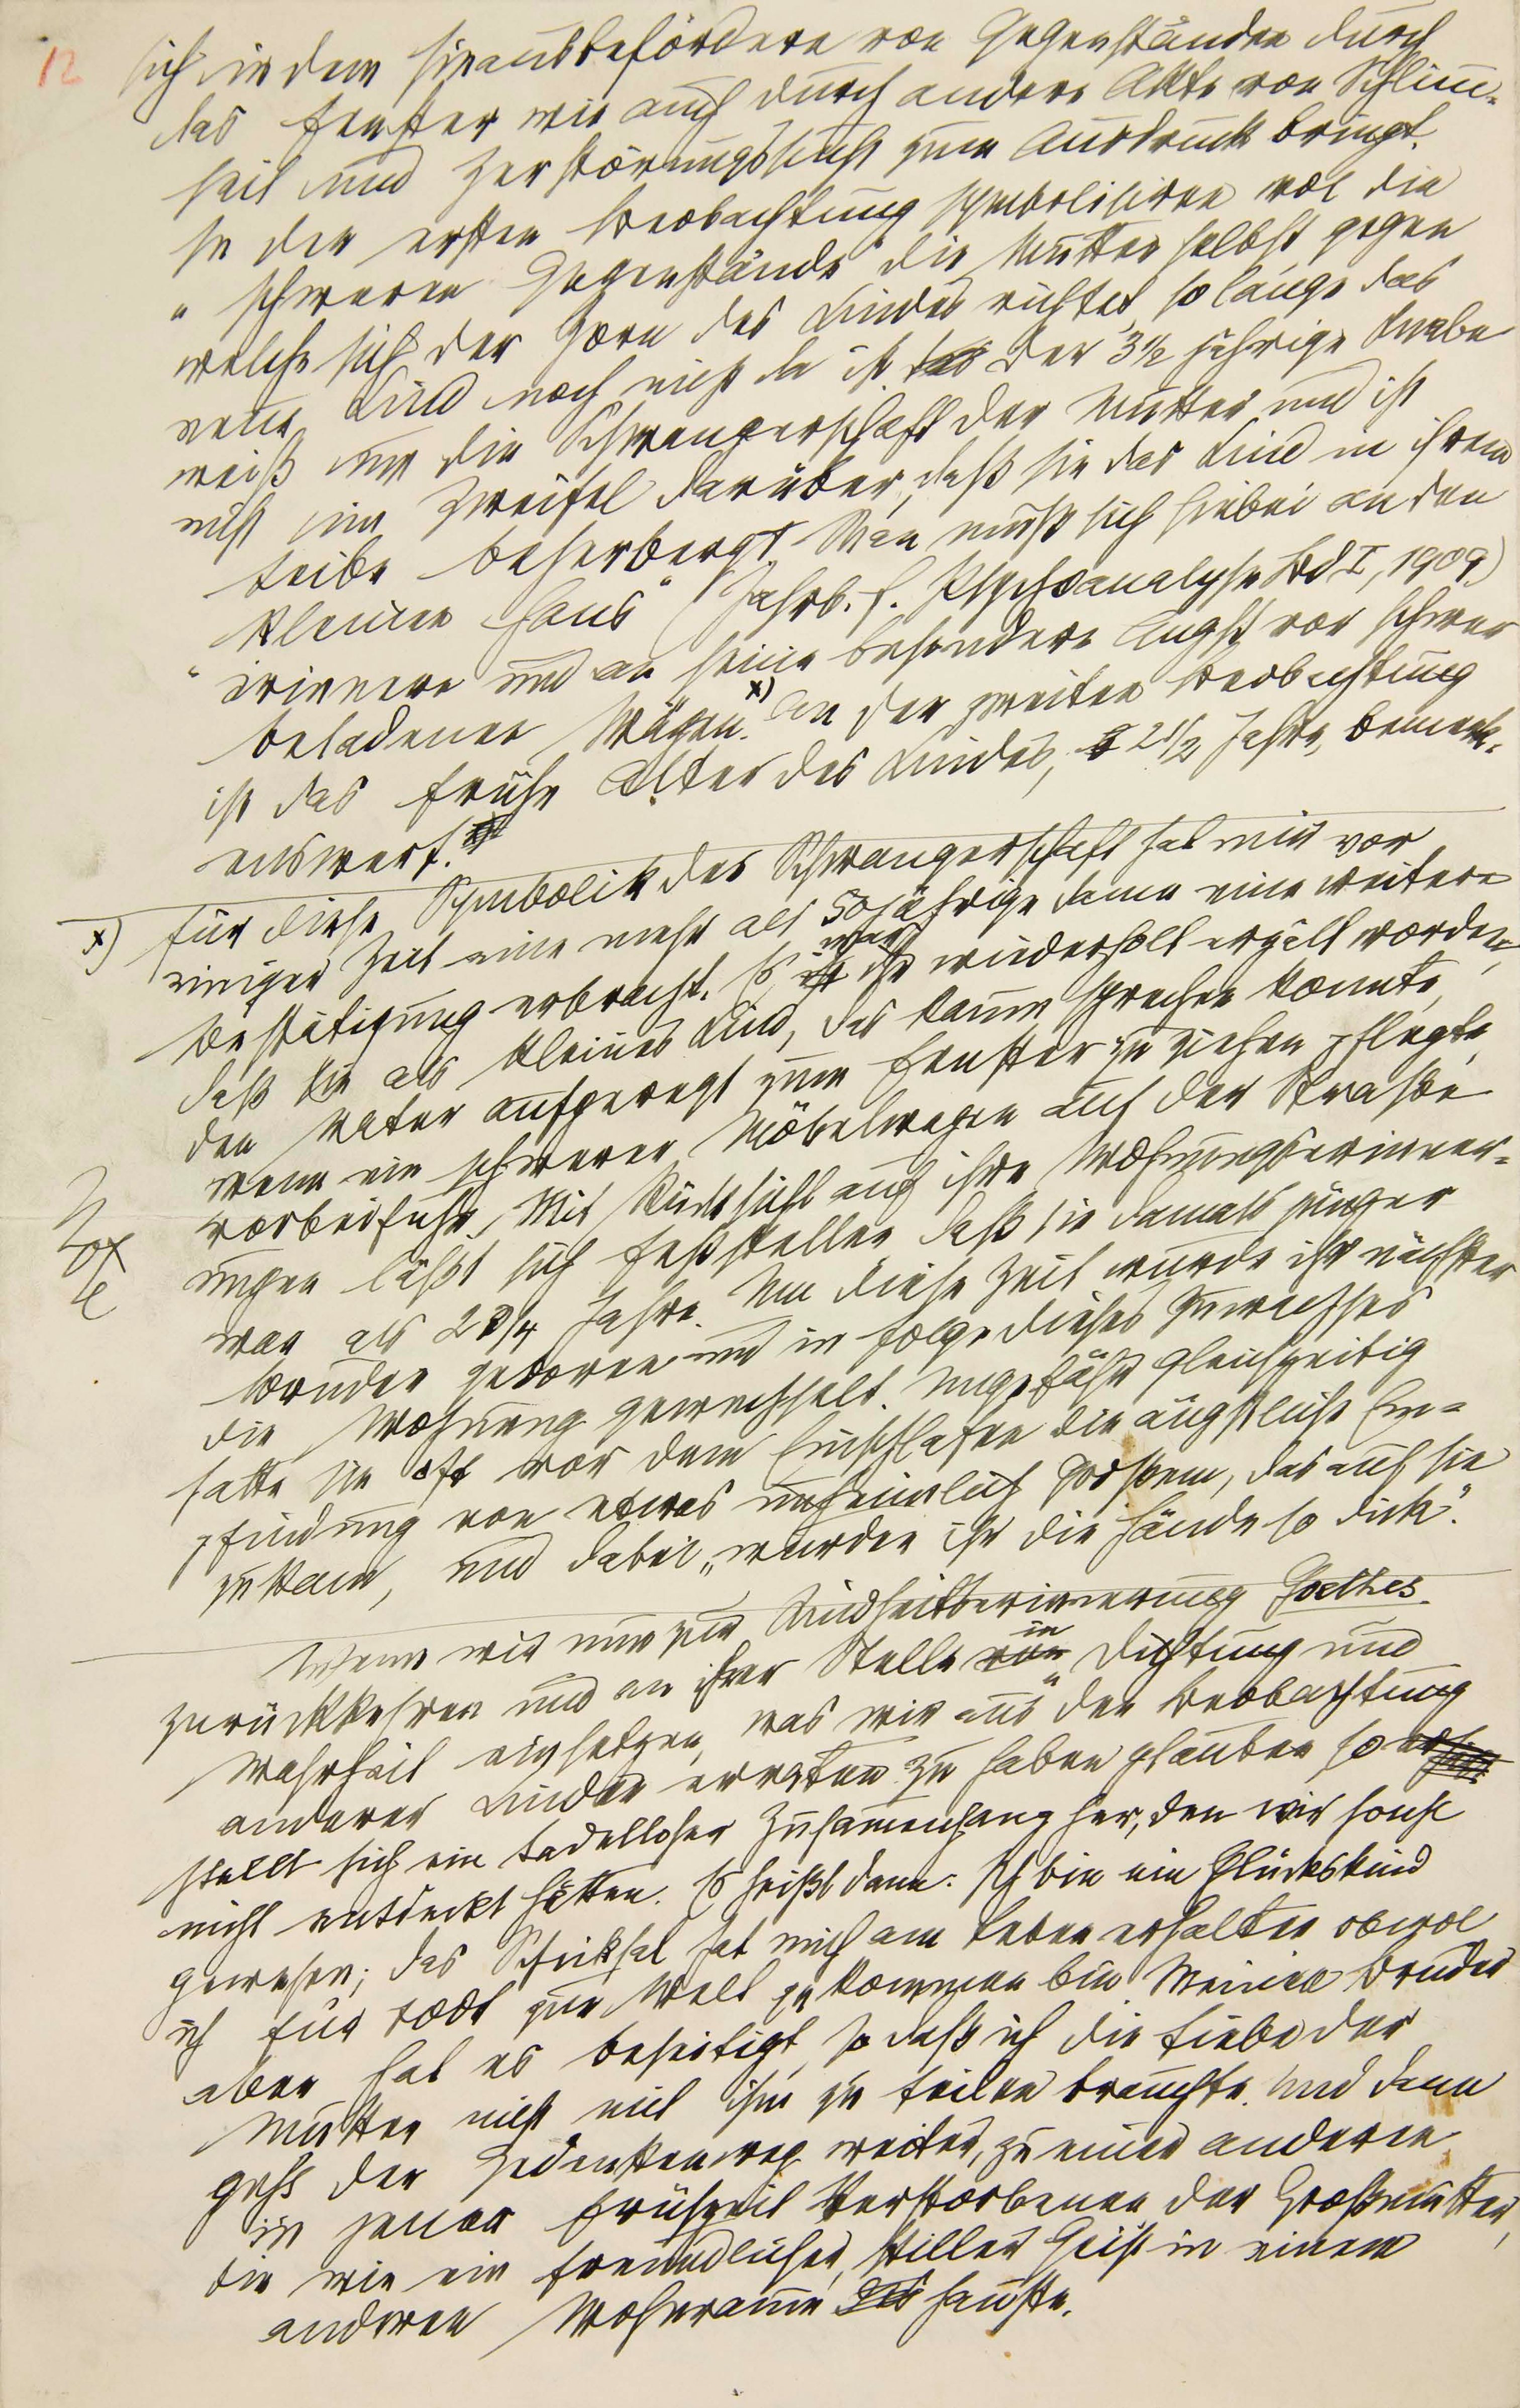 12
sich in dem Hinausbefördern von Gegenständen durch
das Fenster wie auch durch andere Akte von Schlim-
heit und Zerstörungssucht zum Ausdruck bringt.
In der ersten Beobachtung symbolisiren wol die
„schweren Gegenstände" die Mutter selbst gegen
welche sich der Zorn des Kindes richtet, solange das
neue Kind noch nicht da ist. Der 3½ jährige Knabe
weiß um die Schwangerschaft der Mutter und ist
nicht im Zweifel darüber, daß sie das Kind in ihrem
Leibe beherbergt. Man muß sich hiebei an den
„kleinen Hans" (Jahrb. f. Psychoanalyse Bd I, 1909)
erinnern und an seine besondere Angst vor schwer
beladenen Wägen. x) An der zweiten Beobachtung
ist das frühe Alter des Kindes, 2½ Jahre, bemerk-
enswert.
x) Für diese Symbolik der Schwangerschaft hat mir vor
einiger Zeit eine mehr als 50jährige Dame eine weitere
Bestätigung erbracht. Es war ihr wiederholt erzält worden,
daß sie als kleines Kind, das kaum sprechen konnte,
den Vater aufgeregt zum Fenster zu ziehen pflegte,
wenn ein schwerer Möbelwagen auf der Straße
vorbeifuhr. Mit Rücksicht auf ihre Wohnungserinner-
ungen läßt sich feststellen daß sie damals jünger
war als 2¾ Jahre. Um diese Zeit wurde ihr nächster
Bruder geboren und in Folge dieses Zuwachses
die Wohnung gewechselt. Ungefähr gleichzeitig
hatte sie oft vor dem Einschlafen die ängstliche Em-
pfindung von etwas unheimlich Großem, das auf sie
zukam, und dabei „wurden ihr die Hände so dick".
Note
Wenn wir nun zur Kindheitserinnerung Goethes
zurückkehren und an ihrer Stelle in „Dichtung und
Wahrheit einsetzen, was wir aus der Beobachtung
anderer Kinder erraten zu haben glauben so
stellt sich ein tadelloser Zusammenhang her, den wir sonst
nicht entdeckt hätten. Es heißt dann: Ich bin ein Glückskind
gewesen; das Schicksal hat mich am Leben erhalten obwol
ich für todt zur Welt gekommen bin. Meinen Bruder
aber hat es beseitigt, so daß ich die Liebe der
Mutter nicht mit ihm zu teilen brauchte. Und dann
geht der Gedankenweg weiter, zu einer anderen
in jener Frühzeit Verstorbenen der Großmutter,
die wie ein freundlicher, stiller Geist in einem
anderen Wohnraum hauste.